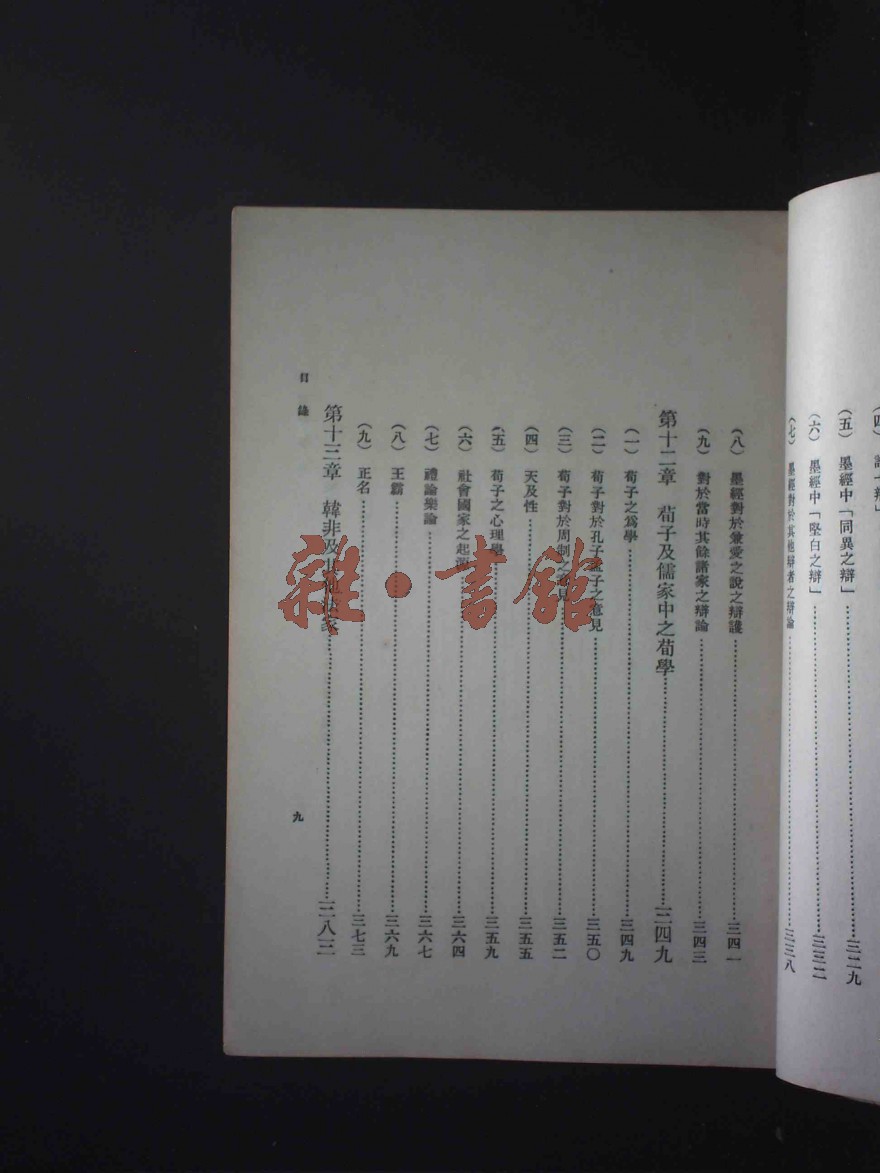 （四）
（五）　墨經中「同異之辯」……三二九
（六）　墨經中「堅白之辯」……三三二
（七）　墨經對於其他辯者之辯論……三三八
（八）　墨經對於兼愛之說之辯護……三四一
（九）　對於當時其餘諸家之辯論……三四三
第十二章　荀子及儒家中之荀學……三四九
（一）　荀子之爲學……三四九
（二）　荀子對於孔子孟子之意見……三五〇
（三）　荀子對於周制之意見……三五二
（四）　天及性……三五五
（五）　荀子之心理學……三五九
（六）　社會國家之起源……三六四
（七）　禮論樂論……三六七
（八）　王霸……三六九
（九）　正名……三七三
第十三章　韓非及其他法家……三八三
目錄
九
雜·書館